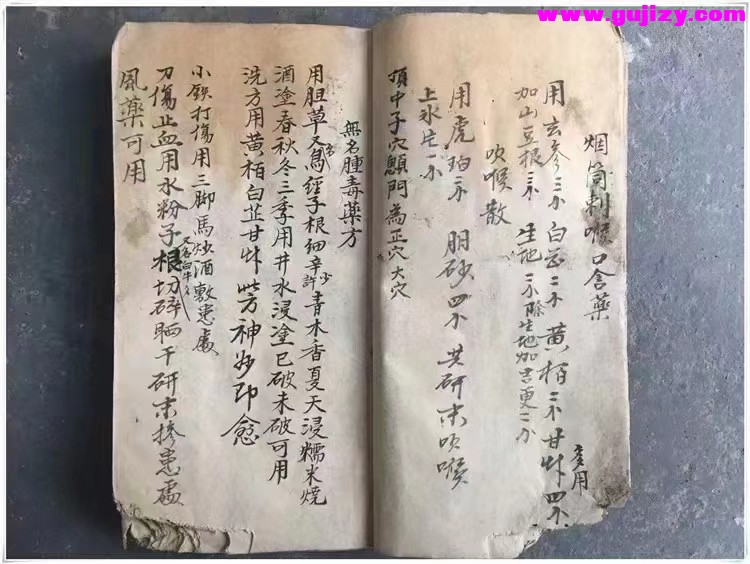 www.gujizy.com
烟筒刺喉口含藥
用玄参三小 白芷二小 黄栢二小 甘艸四小
多用
加山豆根三小 生地二小 除生地加吉更二小
吹喉散
用虎珀三小 朋砂四小 共研末吹喉
上氷片一小
頂中子穴顖門為正穴 大穴
無名腫毒藥方
用胆草 經子根细辛少許青木香夏天浸糯米燒
酒塗春秋冬三季用井水浸塗已破未破可用
洗方用黄栢白芷甘艸 此方神妙即愈
小鉄打傷用三脚馬炒酒敷患處
刀傷止血用水粉子根切碎晒干研末掺患處
又名白牛
風藥可用